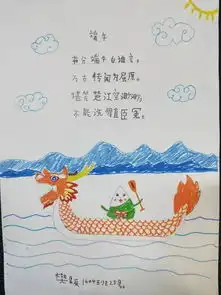 端午
节分端午自谁言,
万古传闻为屈原。
堪笑楚江空渺渺,
不能洗得直臣冤。
樊